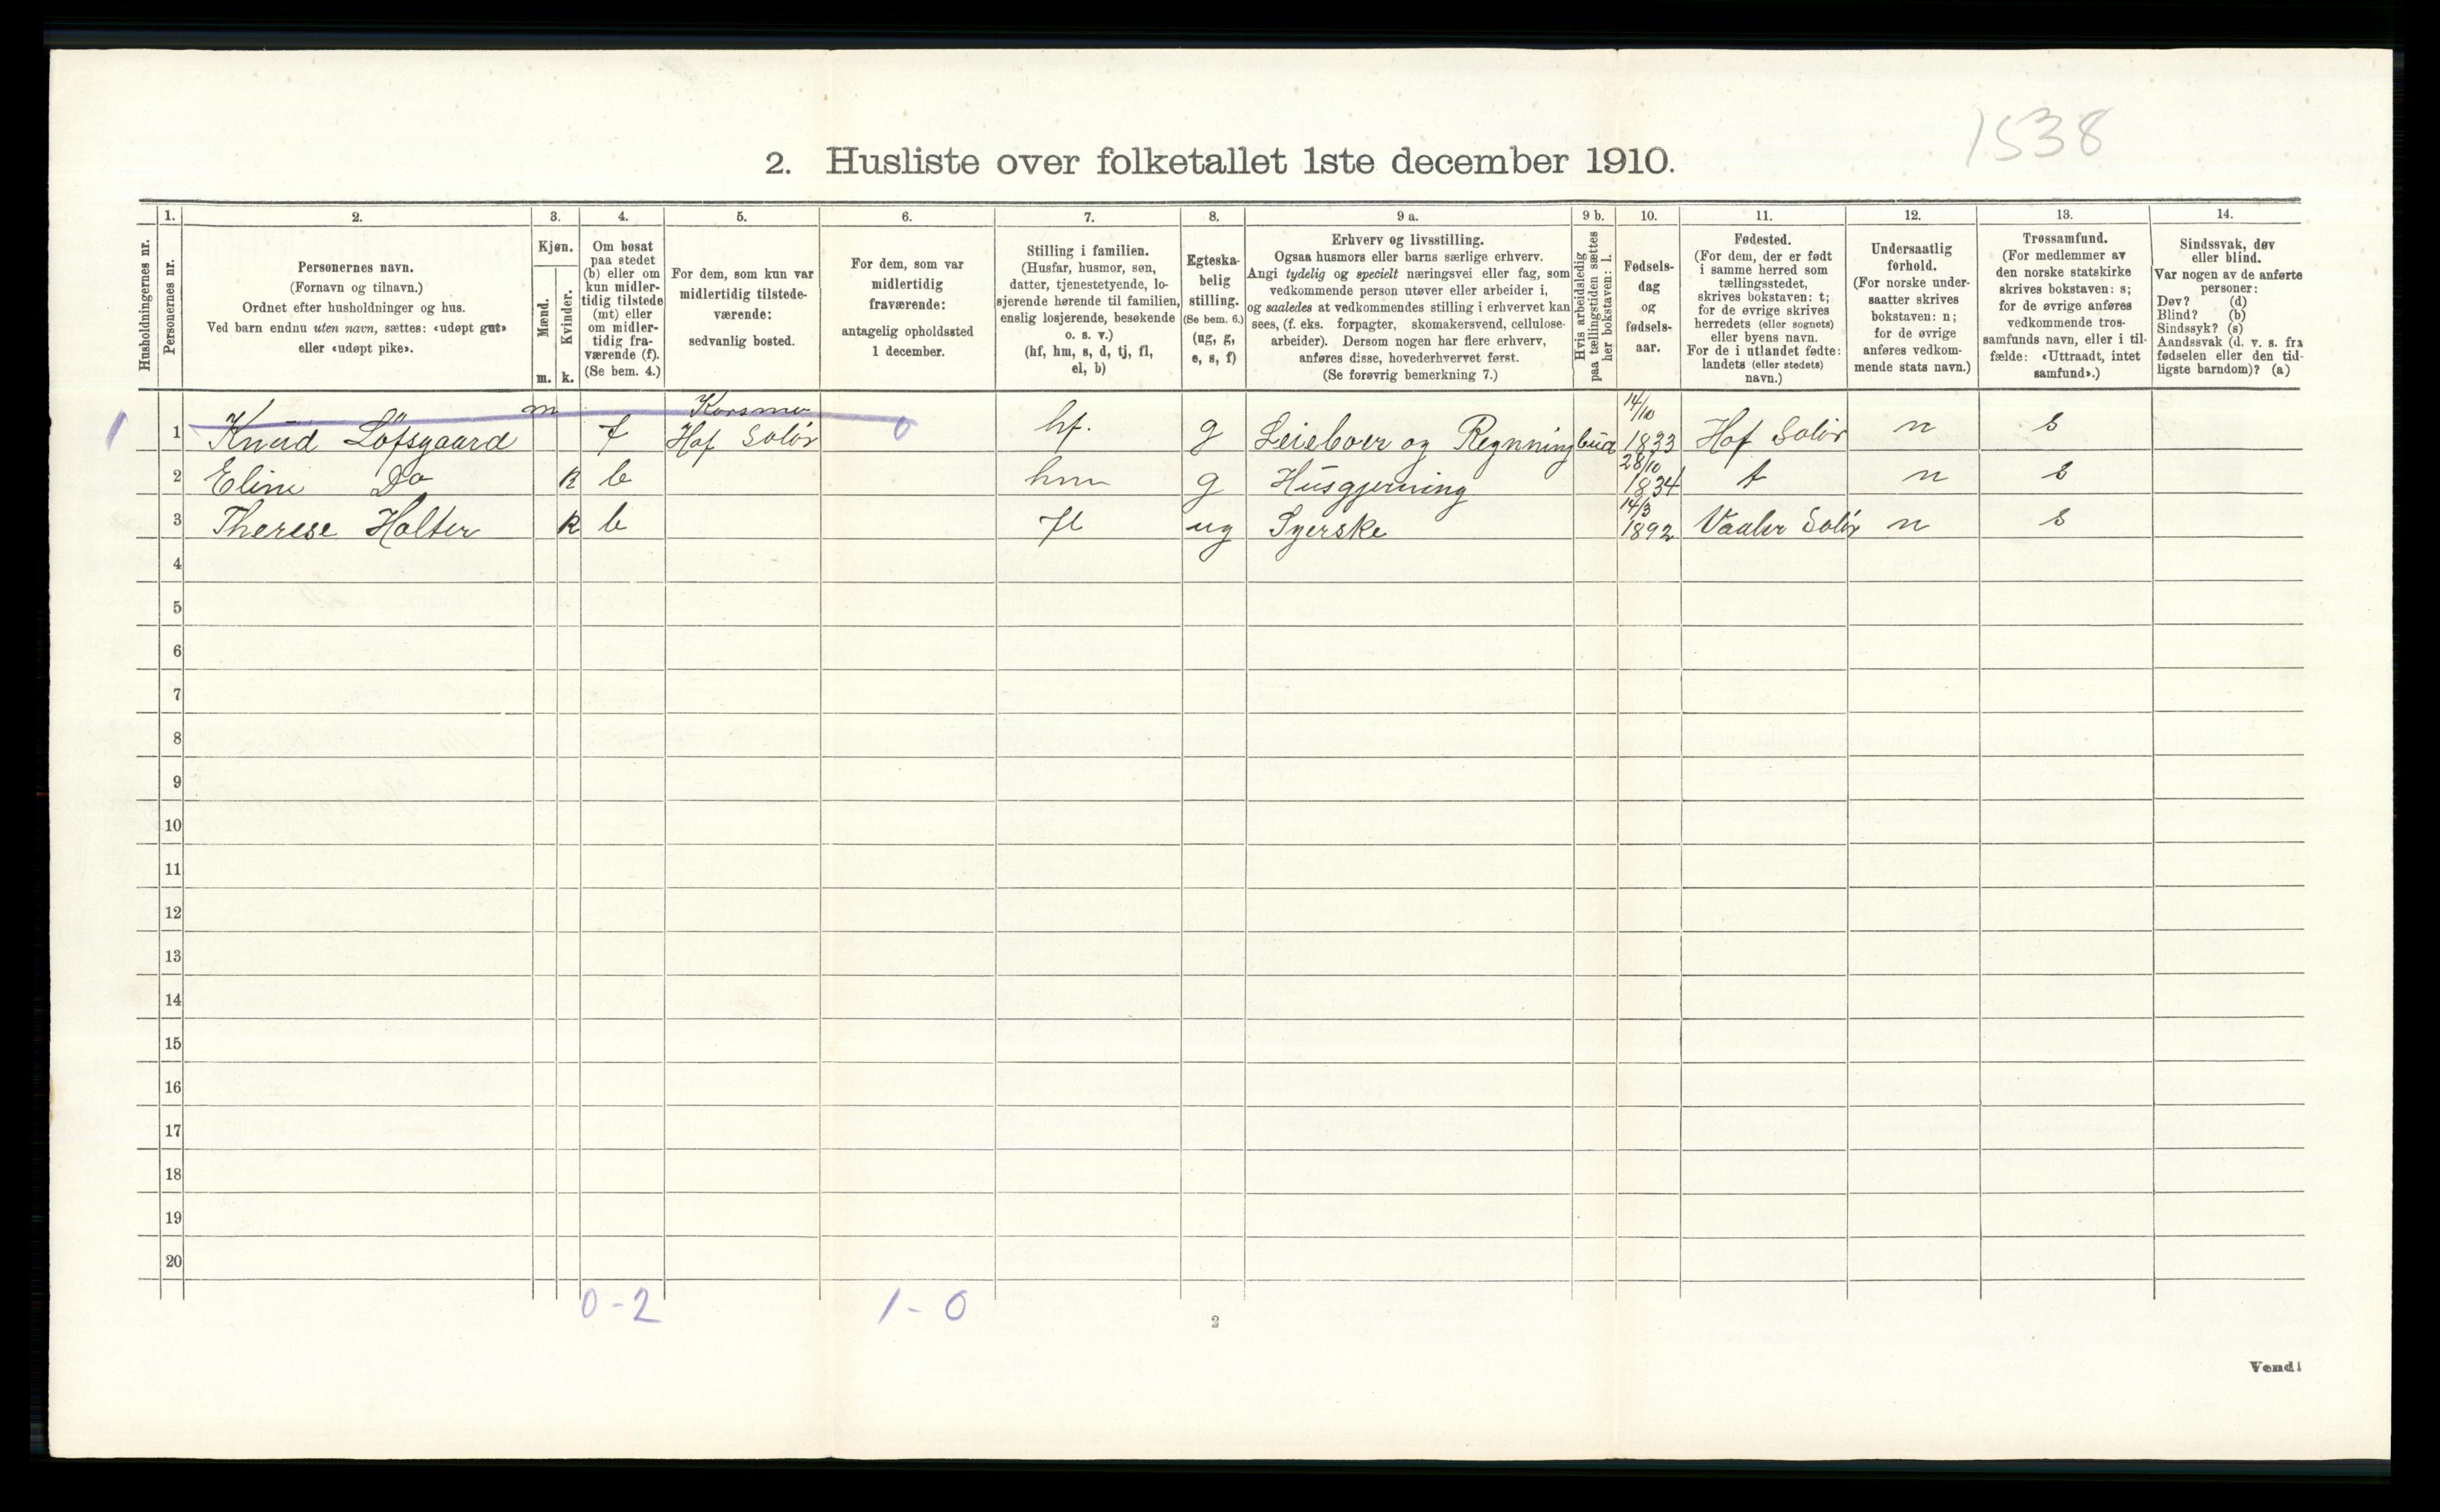 1538
2. Husliste over folketallet 1ste december 1910.
Husholdningernes nr.
1.
Personernes nr.
2.
Personernes navn.
(Fornavn og tilnavn.)
Ordnet efter husholdninger og hus.
Ved barn endnu uten navn, sættes: «udøpt gut»
eller «udøpt pike».
3.
Kjøn.
Mænd.
Kvinder.
m. k.
4.
Om bosat
paa stedet
(b) eller om
kun midler-
tidig tilstede
(mt) eller
om midler-
tidig fra-
værende (f).
(Se bem. 4.)
5.
For dem, som kun var
midlertidig tilstede-
værende:
sedvanlig bosted.
6.
For dem, som var
midlertidig
fraværende:
antagelig opholdssted
1 december.
7.
Stilling i familien.
(Husfar, husmor, søn,
datter, tjenestetyende, lo-
sjerende hørende til familien,
enslig losjerende, besøkende
o. s. v.)
(hf, hm, s, d, tj, fl,
el, b)
8.
Egteska-
belig
stilling.
(Se bem. 6.)
(ug, g,
e, s, f)
9 a.
Erhverv og livsstilling.
Ogsaa husmors eller barns særlige erhverv.
Angi tydelig og specielt næringsvei eller fag, som
vedkommende person utøver eller arbeider i,
og saaledes at vedkommendes stilling i erhvervet kan
sees, (f. eks. forpagter, skomakersvend, cellulose-
arbeider). Dersom nogen har flere erhverv,
anføres disse, hovederhvervet først.
(Se forøvrig bemerkning 7.)
9 b.
Hvis arbeidsledig
paa tællingstiden sættes
her bokstaven: l.
10.
Fødsels-
dag
og
fødsels-
aar.
11.
Fødested.
(For dem, der er født
i samme herred som
tællingsstedet,
skrives bokstaven: t;
for de øvrige skrives
herredets (eller sognets)
eller byens navn.
For de i utlandet fødte:
landets (eller stedets)
navn.)
12.
Undersaatlig
forhold.
(For norske under-
saatter skrives
bokstaven: n;
for de øvrige
anføres vedkom-
mende stats navn.)
13.
Trossamfund.
(For medlemmer av
den norske statskirke
skrives bokstaven: s;
for de øvrige anføres
vedkommende tros-
samfunds navn, eller i til-
fælde: «Uttraadt, intet
samfund».)
14.
Sindssvak, døv
eller blind.
Var nogen av de anførte
personer:
Døv? (d)
Blind? (b)
Sindssyk? (s)
Aandssvak (d. v. s. fra
fødselen eller den tid-
ligste barndom)? (a)
m Korsmo 14/10
1 1 Knud Löfsgaard f Hof Solör 0 hf. g Leieboer og Regnningbud 1833 Hof Solör n s
28/10
2 Eline Do k b hm g Husgjerning 1834 t n s
14/3
3 Therese Holter k b fl ug Syerske 1892 Vaaler Solör n s
4
5
6
7
8
9
10
11
12
13
14
15
16
17
18
19
20
0-2 1-0
2
Vend!